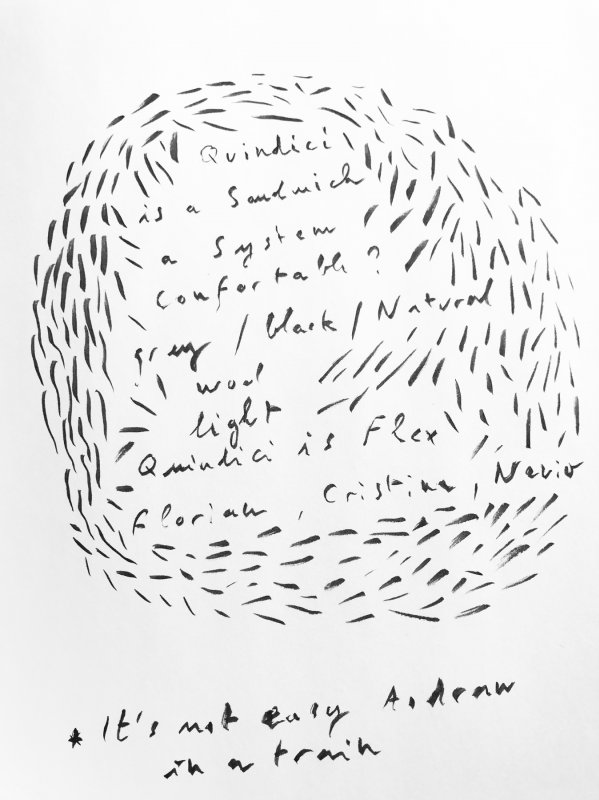 Quindici
is a Sandwich
a System
Confortable ?
grey / black / Natural
wool
light
Quindici is Flex
Florian , Cristina , Nevio
* It's not easy A. draw
in a train